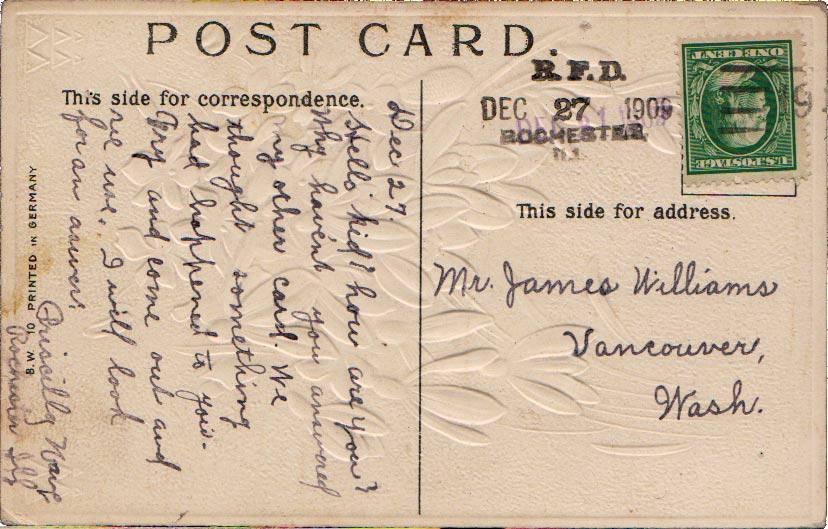 POST CARD.
This side for correspondence.
R.F.D.
DEC 27 1909
ROCHESTER
ONE CENT
U.S. POSTAGE
This side for address.
Mr. James Williams
Vancouver,
Wash.
Dec 27
Hello kid? how are you?
Why havent you answered
my other card. We
thought something
had happened to you.
Try and come out and
see us. I will look
for an answer.
Priscilla
B.W. 10 PRINTED IN GERMANY